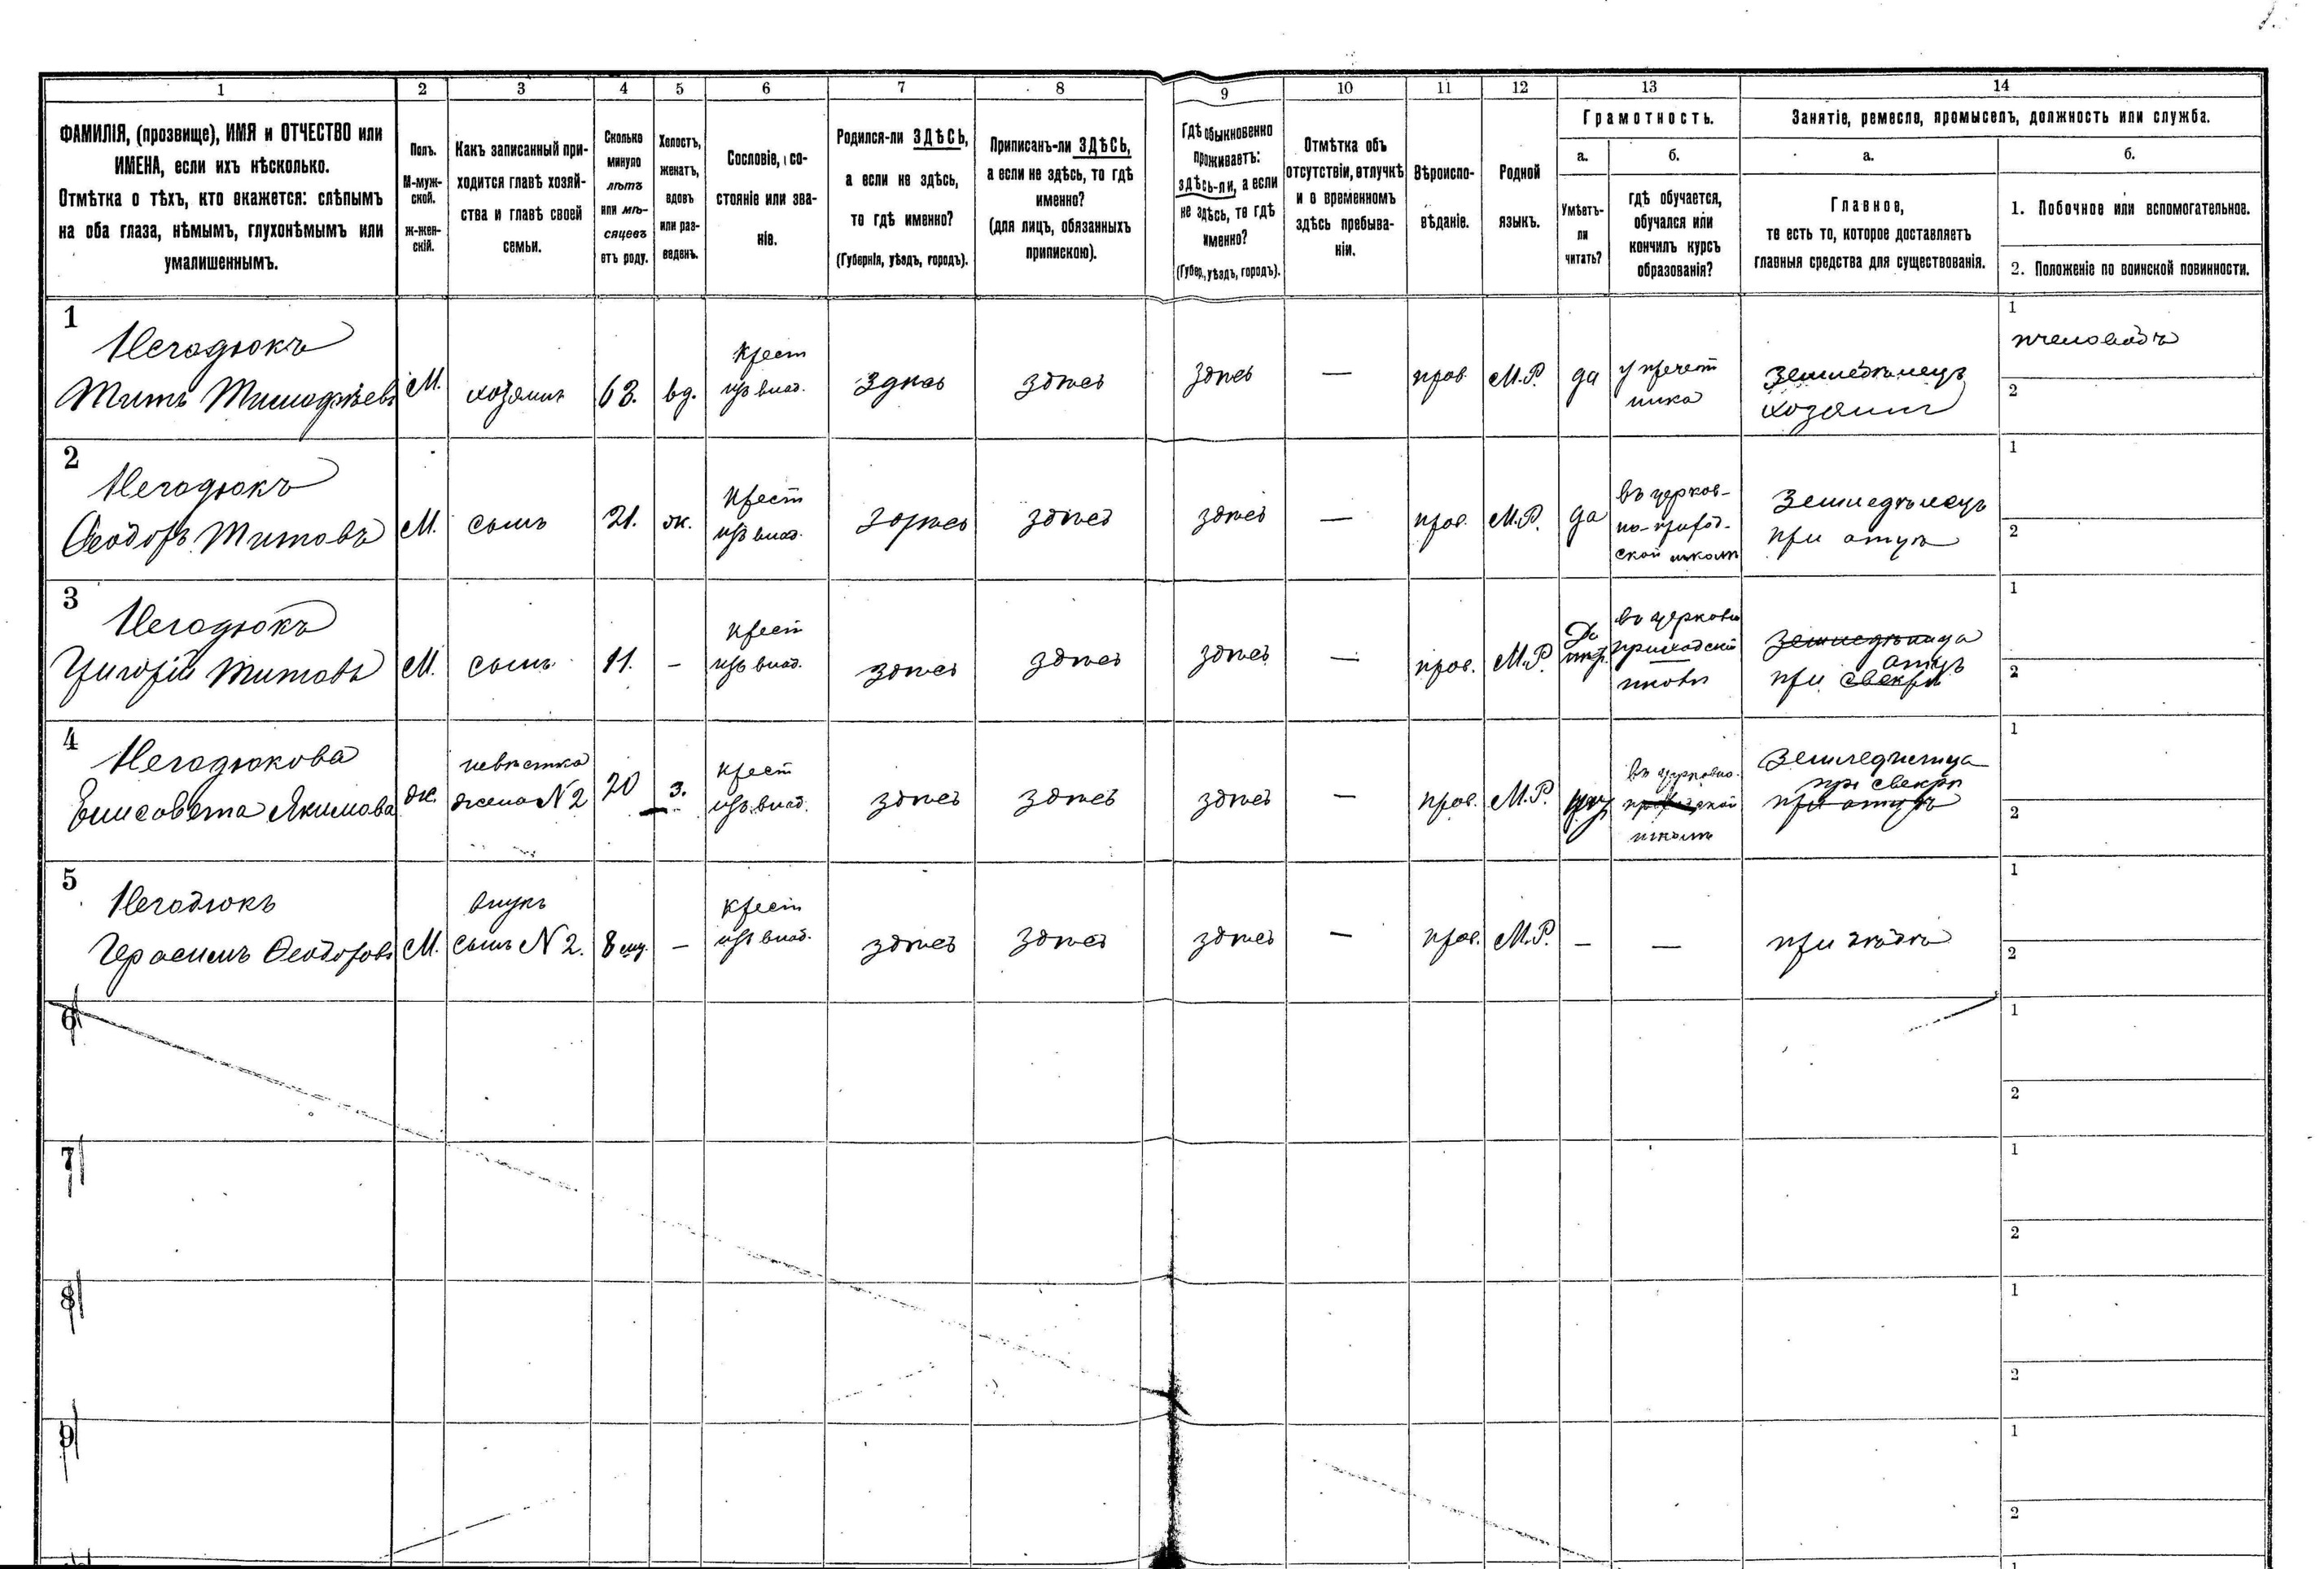 1 2 3 4 5 6 7 8 9 10 11 12 13 14
ФАМИЛІЯ, (прозвище), ИМЯ и ОТЧЕСТВО или
ИМЕНА, если ихъ нѣсколько.
Отмѣтка о тѣхъ, кто окажется: слѣпымъ
на оба глаза, нѣмымъ, глухонѣмымъ или
умалишеннымъ.
Полъ.
М-муж-
ской.
ж-жен-
скій.
Какъ записанный при-
ходится главѣ хозяй-
ства и главѣ своей
семьи.
Сколько
минуло
лѣтъ
или мѣ-
сяцевъ
отъ роду.
Холостъ,
женатъ,
вдовъ
или раз-
веденъ.
Сословіе, со-
стояніе или зва-
ніе.
Родился-ли ЗДѢСЬ,
а если не здѣсь,
то гдѣ именно?
(Губернія, уѣздъ, городъ).
Приписанъ-ли ЗДѢСЬ,
а если не здѣсь, то гдѣ
именно?
(для лицъ, обязанныхъ
припискою).
Гдѣ обыкновенно
проживаетъ:
здѣсь-ли, а если
не здѣсь, то гдѣ
именно?
(Губер., уѣздъ, городъ).
Отмѣтка объ
отсутствіи, отлучкѣ
и о временномъ
здѣсь пребыва-
ніи.
Вѣроиспо-
вѣданіе.
Родной
языкъ.
Грамотность.
а.
Умѣетъ-
ли
читать?
б.
гдѣ обучается,
обучался или
кончилъ курсъ
образованія?
Занятіе, ремесло, промыселъ, должность или служба.
а.
Главное,
то есть то, которое доставляетъ
главныя средства для существованія.
б.
1. Побочное или вспомогательное.
2. Положеніе по воинской повинности.
1
Негодюкъ
Титъ Тимофѣевъ
М.
хозяинъ
63.
вд.
Крест
изъ влад.
здѣсь
здѣсь
здѣсь
—
прав.
М.Р.
да
у причет
ника
земледѣлецъ
хозяинъ
1
пчеловодъ
2
2
Негодюкъ
Ѳеодоръ Титовъ
М.
сынъ
21.
ж.
Крест
изъ влад.
здѣсь
здѣсь
здѣсь
—
прав.
М.Р.
да
въ церков-
но-приход-
ской школѣ
Земледѣлецъ
при отцѣ
1
2
3
Негодюкъ
Григорій Титовъ
М.
сынъ
11.
—
Крест
изъ влад.
здѣсь
здѣсь
здѣсь
—
прав.
М.Р.
Да
въ церковно
приходской
школѣ
земледѣлица
отцѣ
при свекрѣ
1
2
4
Негодюкова
Елисовета Якимова
ж.
невѣстка
жена N 2
20
з.
Крест
изъ влад.
здѣсь
здѣсь
здѣсь
—
прав.
М.Р.
въ церковно-
приходской
школѣ
Земледѣлица
при свекрѣ
при отцѣ
1
2
5
Негодюкъ
Герасимъ Ѳеодоровъ
М.
внукъ
сынъ N 2.
8 мц.
—
Крест
изъ влад.
здѣсь
здѣсь
здѣсь
—
прав.
М.Р.
—
—
при дѣдѣ
1
2
6
1
2
7
1
2
8
1
2
9
1
2
1